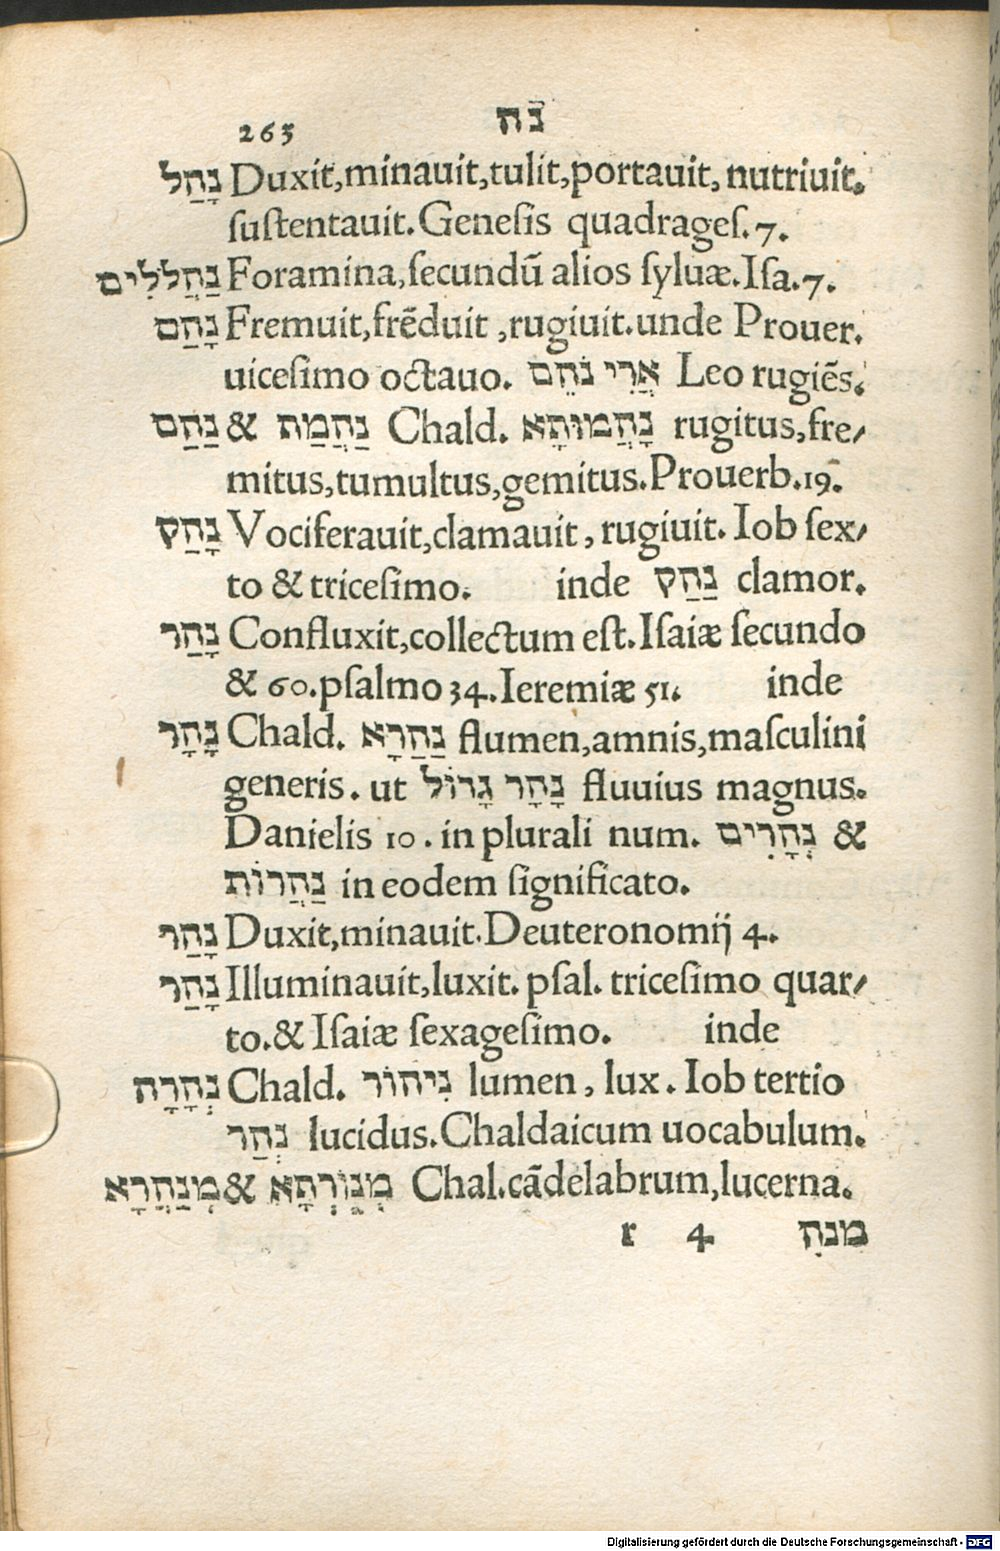 265 נה
נָהַל Duxit,minauit,tulit,portauit, nutriuit.
sustentauit.Genesis quadrages.7.
נַהֲלֹלִים Foramina,secundū alios syluæ.Isa.7.
נָהַם Fremuit,frēduit ,rugiuit.unde Prouer.
uicesimo octauo. אֲרִי נֹהֵם Leo rugiēs.
נַהַם & נַהֲמַת Chald. נָהֲמוּתָא rugitus,fre/
mitus,tumultus,gemitus.Prouerb.19.
נָהַק Vociferauit,clamauit, rugiuit. Iob sex/
to & tricesimo. inde נַהַק clamor.
נָהַר Confluxit,collectum est.Isaiæ secundo
& 60.psalmo 34.Ieremiæ 51. inde
נָהָר Chald. נַהַרָא flumen,amnis,masculini
generis. ut נָהָר גָּדוֹל fluuius magnus.
Danielis 10. in plurali num. נְהָרִים &
נַהֲרוֹת in eodem significato.
נָהַר Duxit,minauit.Deuteronomij 4.
נָהַר Illuminauit,luxit. psal. tricesimo quar/
to.& Isaiæ sexagesimo. inde
נְהָרָה Chald. נִיהוֹר lumen, lux. Iob tertio
נְהַר lucidus.Chaldaicum uocabulum.
מְנַהֲרָא & מְנוֹרְתָּא Chal.cādelabrum,lucerna.
r 4 מנה
Digitalisierung gefördert durch die Deutsche Forschungsgemeinschaft - DFG